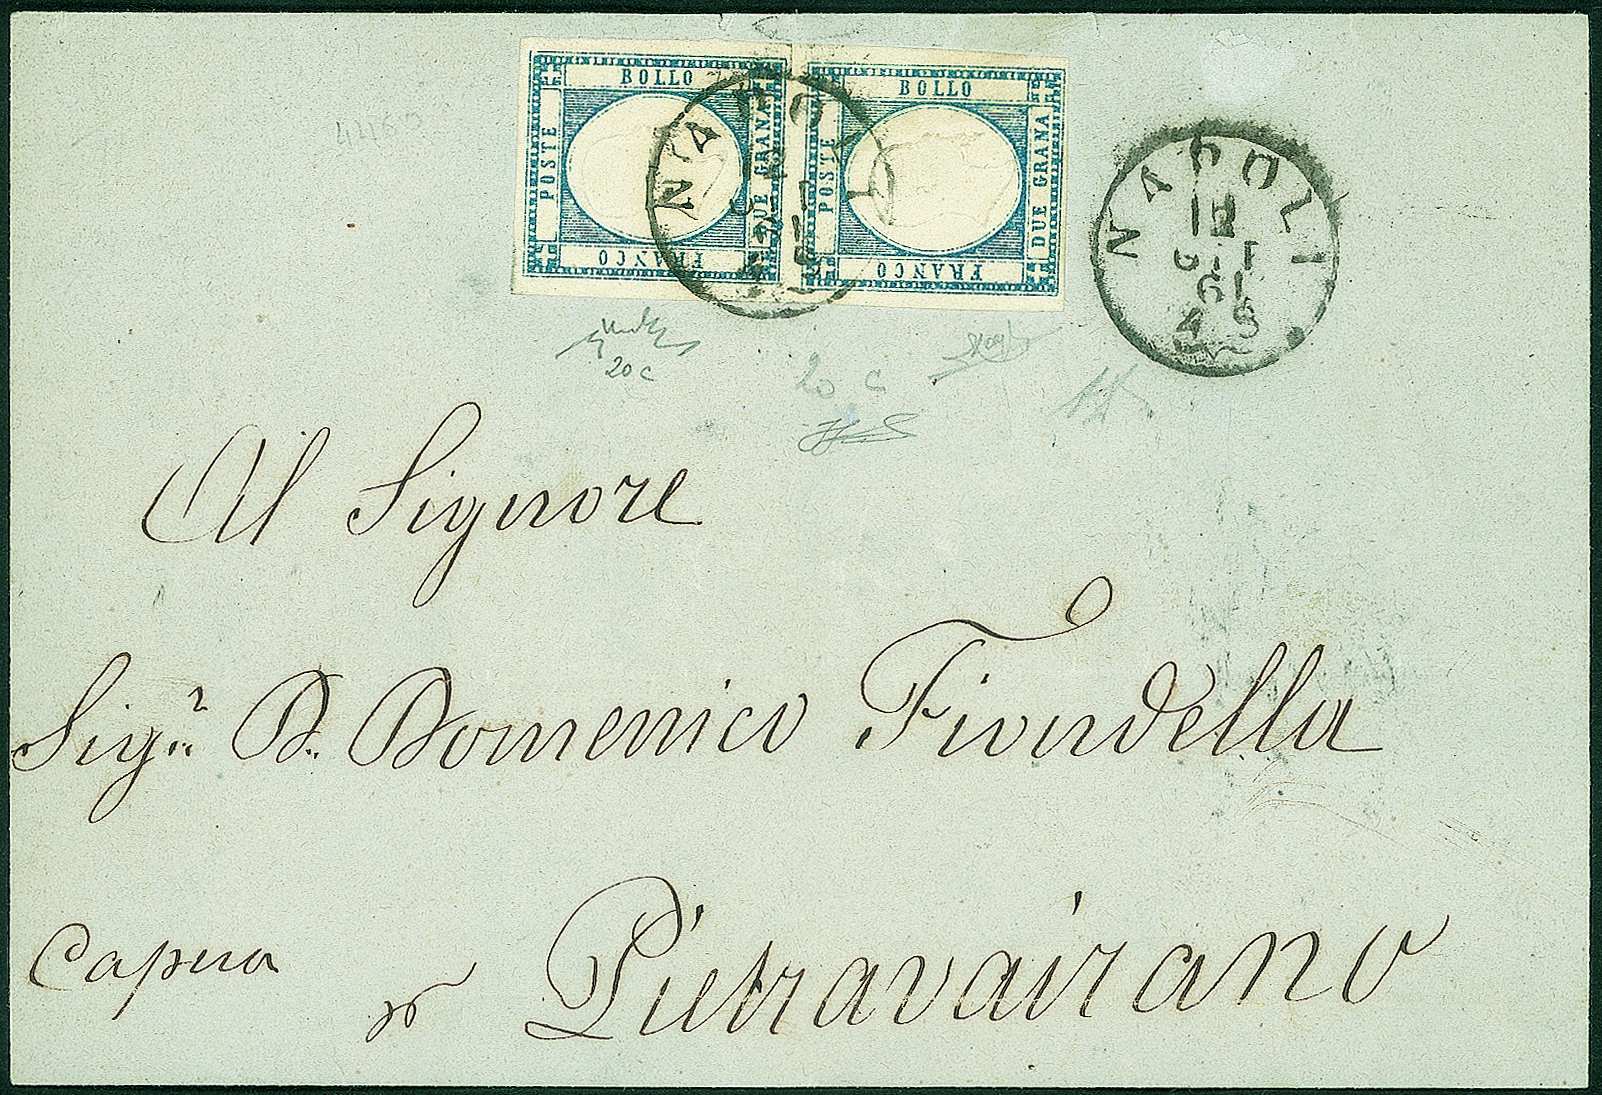 BOLLO
POSTE
DUE GRANA
FRANCO
BOLLO
POSTE
DUE GRANA
FRANCO
NAPOLI
NAPOLI
12
61
4 S
4460
20 c
20 c
Al Signore
Sig.r D. Domenico Fiondella
Capua
p Pietravairano